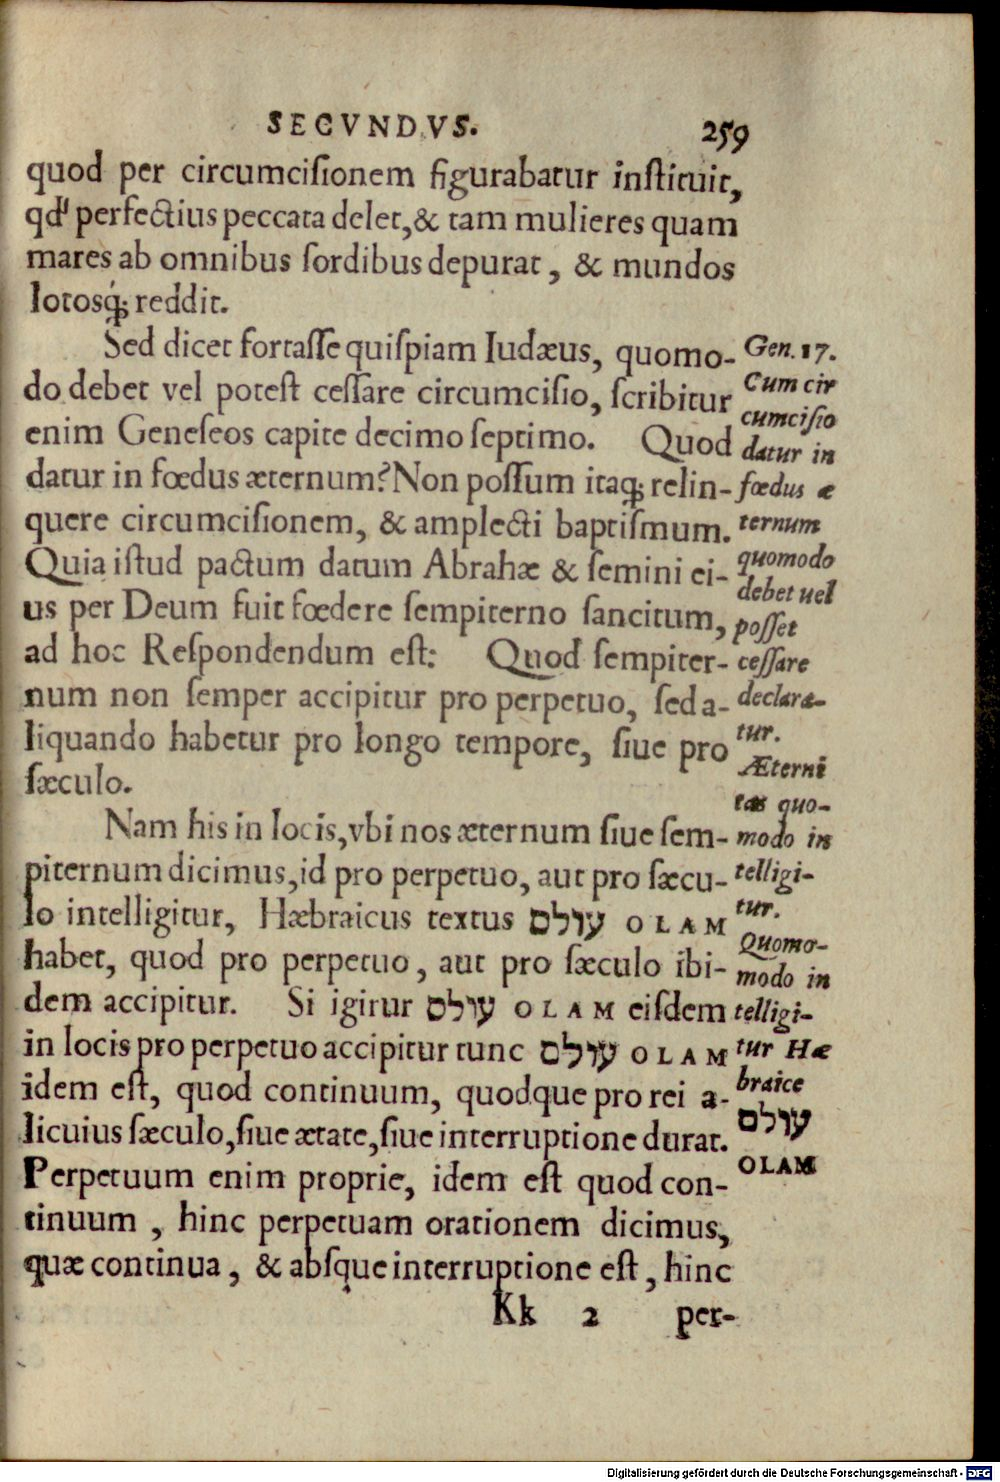 SECVNDVS. 259
quod per circumciſionem figurabatur inſtituit,
qd' perfectius peccata delet, & tam mulieres quam
mares ab omnibus ſordibus depurat, & mundos
lotosq; reddit.
Sed dicet fortaſſe quiſpiam Iudæus, quomo-
do debet vel poteſt ceſſare circumciſio, ſcribitur
enim Geneſeos capite decimo ſeptimo. Quod
datur in fœdus æternum? Non poſſum itaq; relin-
quere circumciſionem, & amplecti baptiſmum.
Quia iſtud pactum datum Abrahæ & ſemini ei-
us per Deum fuit fœdere ſempiterno ſancitum,
ad hoc Reſpondendum eſt: Quod ſempiter-
num non ſemper accipitur pro perpetuo, ſed a-
liquando habetur pro longo tempore, ſiue pro
ſæculo.
Nam his in locis, vbi nos æternum ſiue ſem-
piternum dicimus, id pro perpetuo, aut pro ſæcu-
lo intelligitur, Hæbraicus textus עולם OLAM
habet, quod pro perpetuo, aut pro ſæculo ibi-
dem accipitur. Si igitur עולם OLAM eiſdem
in locis pro perpetuo accipitur tunc עולם OLAM
idem eſt, quod continuum, quodque pro rei a-
licuius ſæculo, ſiue ætate, ſiue interruptione durat.
Perpetuum enim proprie, idem eſt quod con-
tinuum, hinc perpetuam orationem dicimus,
quæ continua, & abſque interruptione eſt, hinc
Kk 2 per-
Gen. 17.
Cum cir
cumciſio
datur in
fœdus æ
ternum
quomodo
debet uel
poſſet
ceſſare
declara-
tur.
Æterni
tas quo-
modo in
telligi-
tur.
Quomo-
modo in
telligi-
tur Hæ
braice
עולם
OLAM
Digitalisierung gefördert durch die Deutsche Forschungsgemeinschaft - DFG